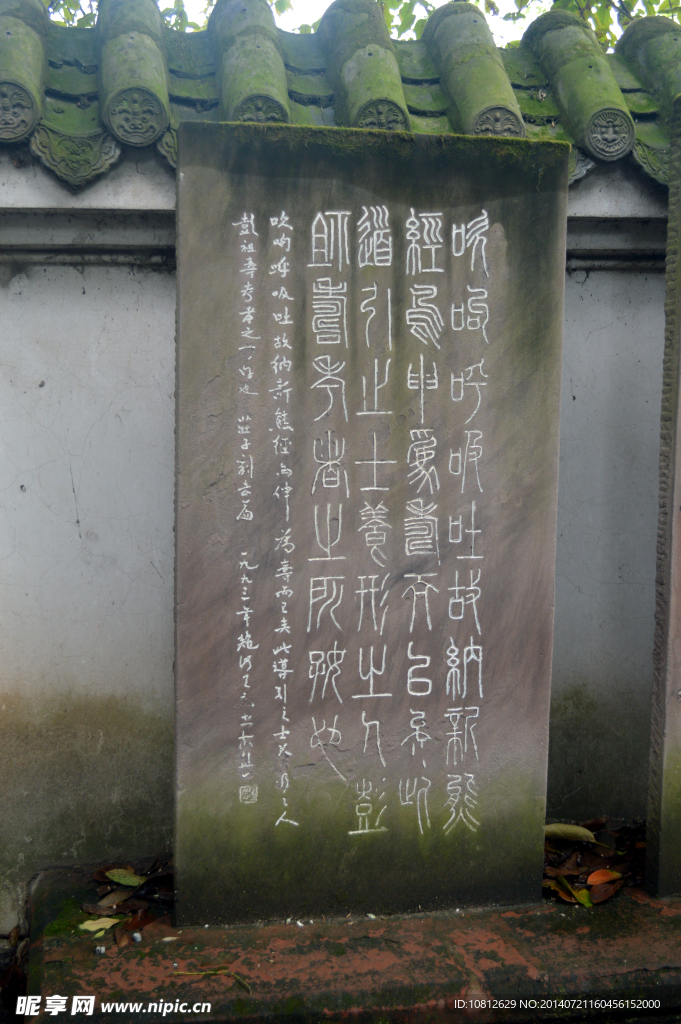 吹呴呼吸吐故納新熊
經鳥申爲壽而已矣此
道引之士養形之人彭
祖壽考者之所好也
吹呴呼吸吐故納新熊經鳥伸為壽而已矣此導引之士養形之人
彭祖壽考者之所好也 莊子刻意篇 一九九三年
昵享网 www.nipic.cn
ID:10812629 NO:20140721160456152000